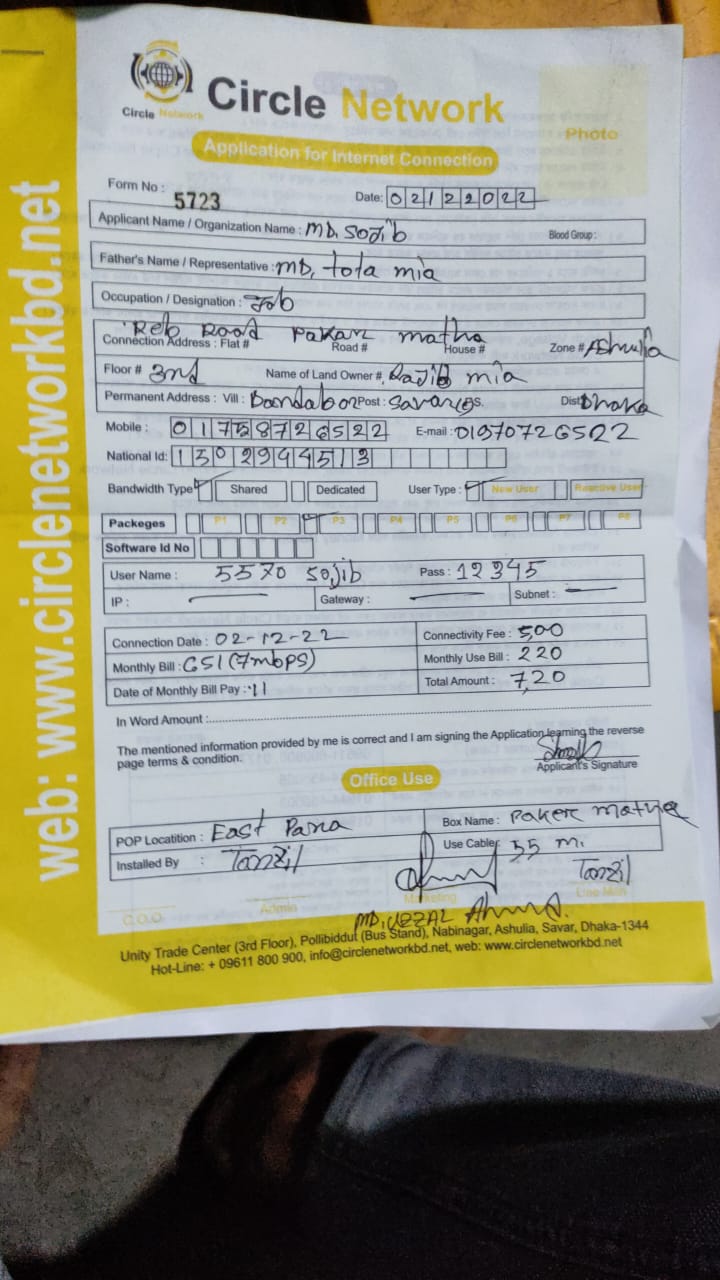 web: www.circlenetworkbd.net
Circle Network
Circle Network
Application for Internet Connection
Photo
Form No : 5723
Date: 02122022
Applicant Name / Organization Name : MD, Sojib Blood Group :
Father's Name / Representative : MD, tola mia
Occupation / Designation : Job
Reb Road Pakar matha
Connection Address : Flat # Road # House # Zone # Ashulia
Floor # 3rd Name of Land Owner # Rajib mia
Permanent Address : Vill : Post : Savar P.S. Dist Dhaka
Mobile : E-mail : 01970726522
National Id: 1502944513
Bandwidth Type Shared Dedicated User Type : New User Reactive User
Packeges P1 P2 P3 P4 P5 P6 P7 P8
Software Id No
User Name : 5570 sojib Pass : 12345
IP : Gateway : Subnet :
Connection Date : 02-12-22 Connectivity Fee : 500
Monthly Bill : (7mbps) Monthly Use Bill : 220
Date of Monthly Bill Pay : 11 Total Amount : 7,20
In Word Amount :
The mentioned information provided by me is correct and I am signing the Application learning the reverse
page terms & condition.
Applicant's Signature
Office Use
POP Locatition : East Para Box Name : Paker matha
Installed By : Tanzil Use Cable: 55 m.
Tanzil
C.O.O. Admin Marketing Line Man
MD, UZZAL Ahmed.
Unity Trade Center (3rd Floor), Pollibiddut (Bus Stand), Nabinagar, Ashulia, Savar, Dhaka-1344
Hot-Line: + 09611 800 900, info@circlenetworkbd.net, web: www.circlenetworkbd.net